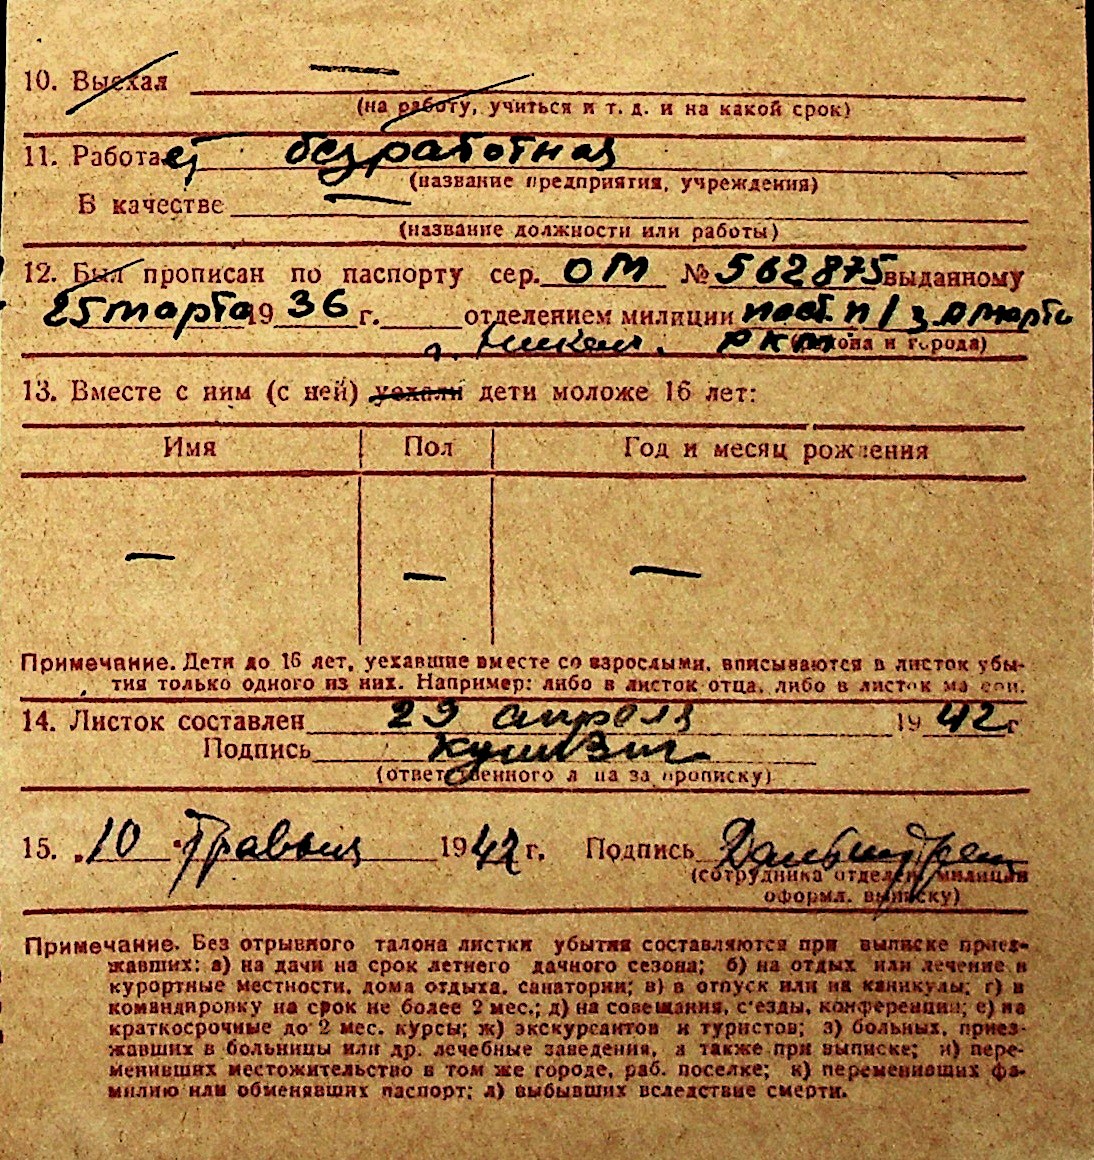 10. Выехал
(на работу, учиться и т. д. и на какой срок)
11. Работает безработная
(название предприятия, учреждения)
В качестве
(название должности или работы)
12. Был прописан по паспорту сер. ОМ № 562875 выданному
25 марта 19 36 г. отделением милиции
г. РКМ (района и города)
13. Вместе с ним (с ней) уехали дети моложе 16 лет:
Имя Пол Год и месяц рождения
— — —
Примечание. Дети до 16 лет, уехавшие вместе со взрослыми, вписываются в листок убы-
тия только одного из них. Например: либо в листок отца, либо в листок матери.
14. Листок составлен 29 апреля 19 42 г
Подпись
(ответственного лица за прописку)
15. „10" Травня 1942 г. Подпись
(сотрудника отделен. милиции
оформл. выписку)
Примечание. Без отрывного талона листки убытия составляются при выписке приез-
жавших: а) на дачи на срок летнего дачного сезона; б) на отдых или лечение в
курортные местности, дома отдыха, санатории; в) в отпуск или на каникулы; г) в
командировку на срок не более 2 мес.; д) на совещания, с'езды, конференции; е) на
краткосрочные до 2 мес. курсы; ж) экскурсантов и туристов; з) больных, приез-
жавших в больницы или др. лечебные заведения, а также при выписке; и) пере-
менивших местожительство в том же городе, раб. поселке; к) переменивших фа-
милию или обменявших паспорт; л) выбывших вследствие смерти.